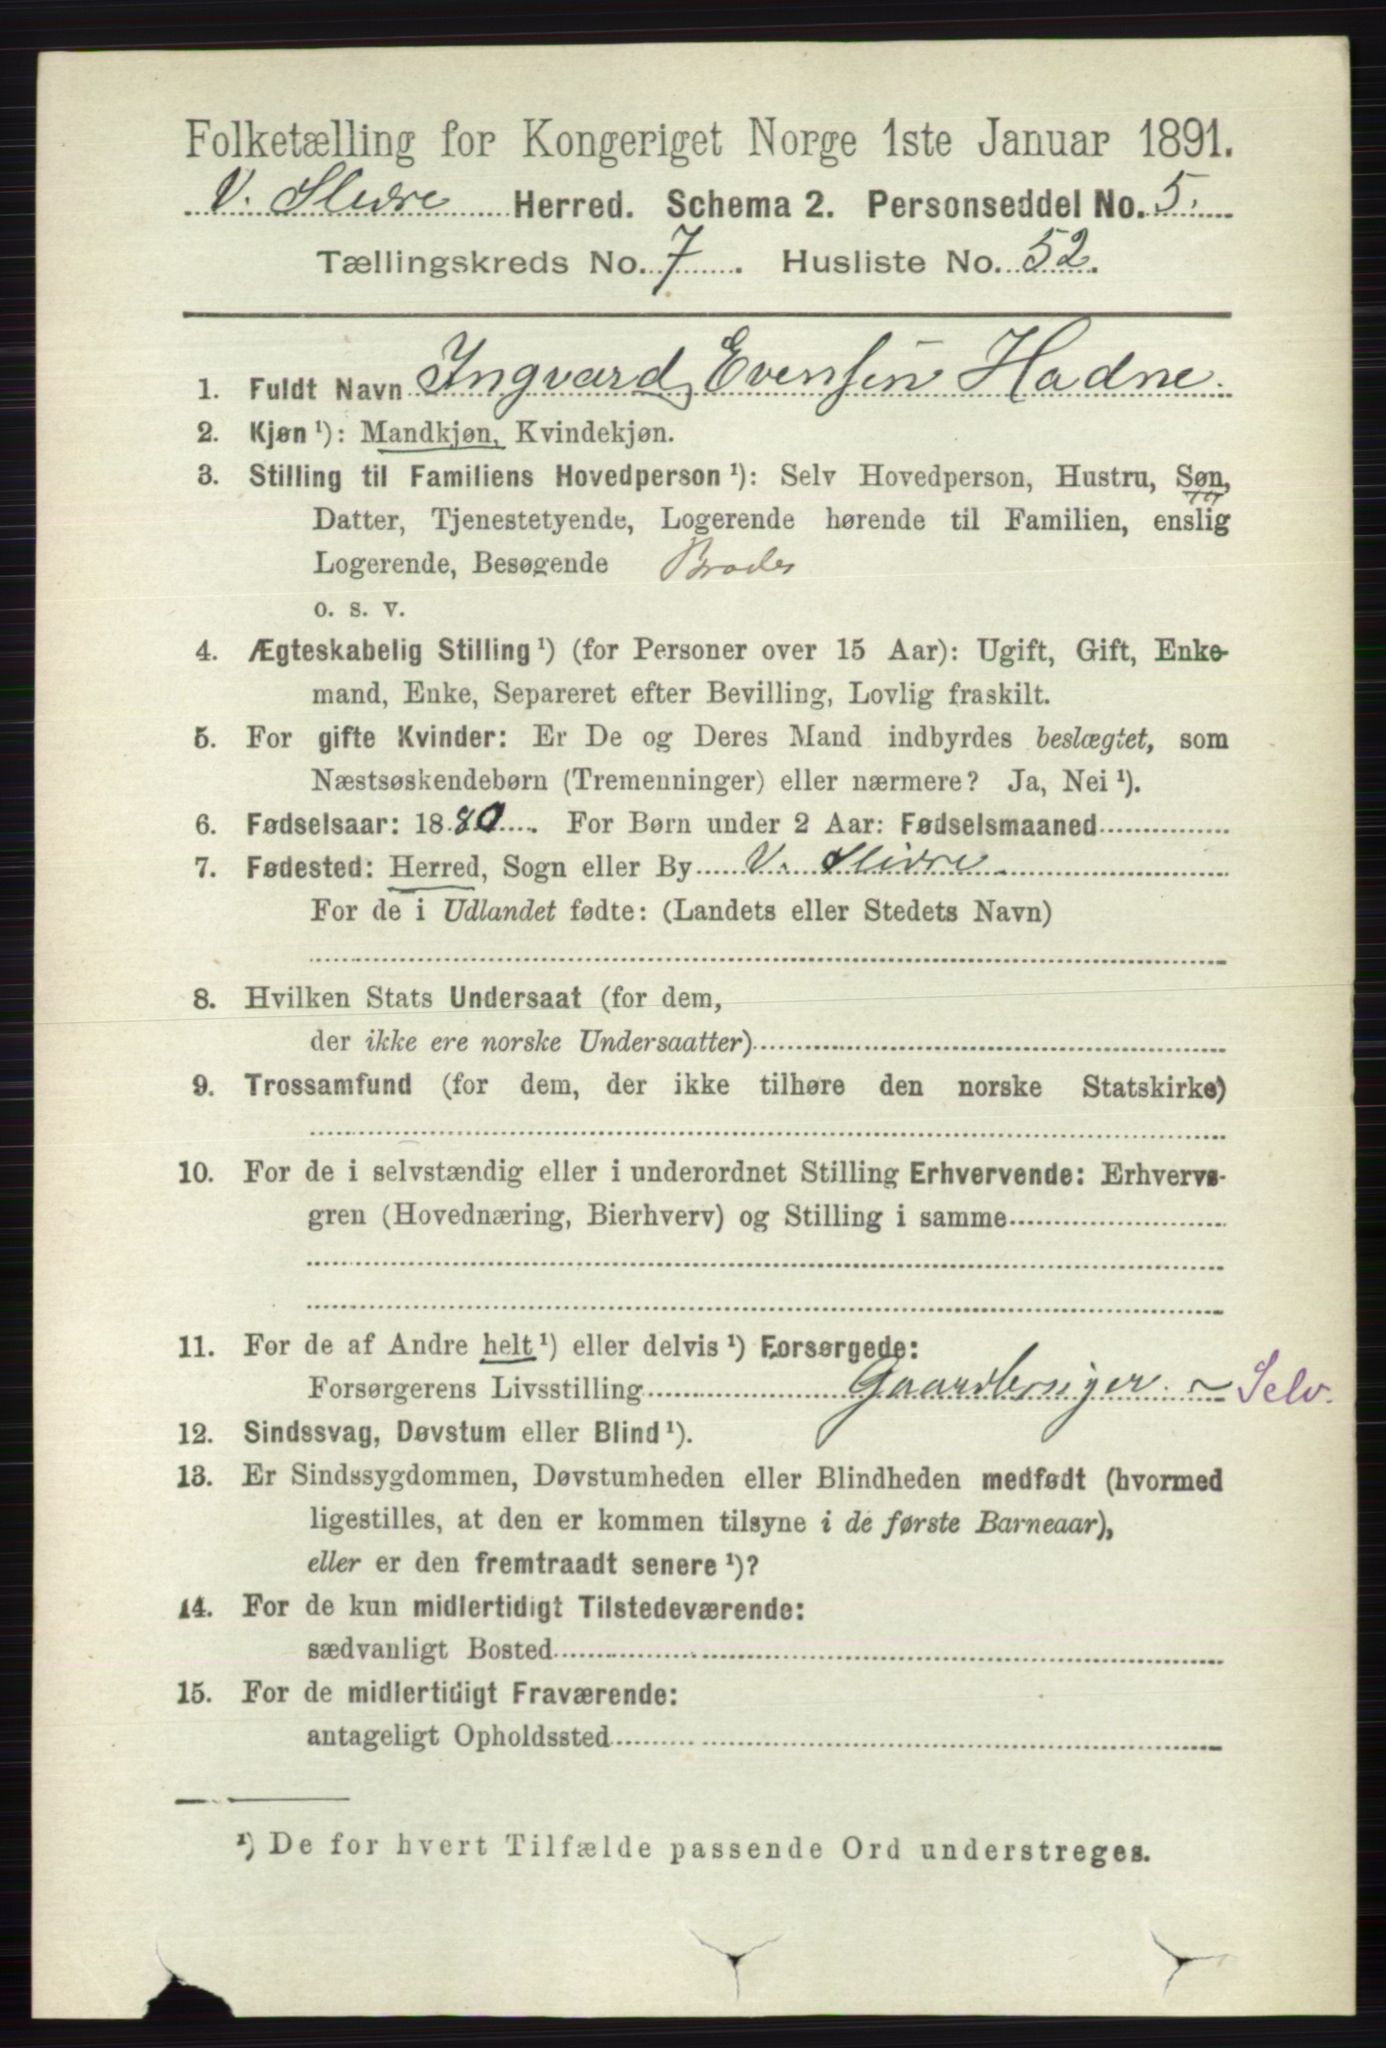 Folketælling for Kongeriget Norge 1ste Januar 1891.
V. Slidre Herred. Schema 2. Personseddel No. 5.
Tællingskreds No. 7. Husliste No. 52.
1. Fuldt Navn Ingvard Evensen Hadne.
2. Kjøn ¹): Mandkjøn, Kvindekjøn.
3. Stilling til Familiens Hovedperson ¹): Selv Hovedperson, Hustru, Søn,
Datter, Tjenestetyende, Logerende hørende til Familien, enslig
Logerende, Besøgende Broder
o. s. v.
4. Ægteskabelig Stilling ¹) (for Personer over 15 Aar): Ugift, Gift, Enke-
mand, Enke, Separeret efter Bevilling, Lovlig fraskilt.
5. For gifte Kvinder: Er De og Deres Mand indbyrdes beslægtet, som
Næstsøskendebørn (Tremenninger) eller nærmere? Ja, Nei ¹).
6. Fødselsaar: 1880. For Børn under 2 Aar: Fødselsmaaned
7. Fødested: Herred, Sogn eller By V. Slidre.
For de i Udlandet fødte: (Landets eller Stedets Navn)
8. Hvilken Stats Undersaat (for dem,
der ikke ere norske Undersaatter)
9. Trossamfund (for dem, der ikke tilhøre den norske Statskirke)
10. For de i selvstændig eller i underordnet Stilling Erhvervende: Erhvervs-
gren (Hovednæring, Bierhverv) og Stilling i samme
11. For de af Andre helt ¹) eller delvis ¹) Forsørgede:
Forsørgerens Livsstilling Gaardbruger. ~ Selv.
12. Sindssvag, Døvstum eller Blind ¹).
13. Er Sindssygdommen, Døvstumheden eller Blindheden medfødt (hvormed
ligestilles, at den er kommen tilsyne i de første Barneaar),
eller er den fremtraadt senere ¹)?
14. For de kun midlertidigt Tilstedeværende:
sædvanligt Bosted
15. For de midlertidigt Fraværende:
antageligt Opholdssted
¹) De for hvert Tilfælde passende Ord understreges.